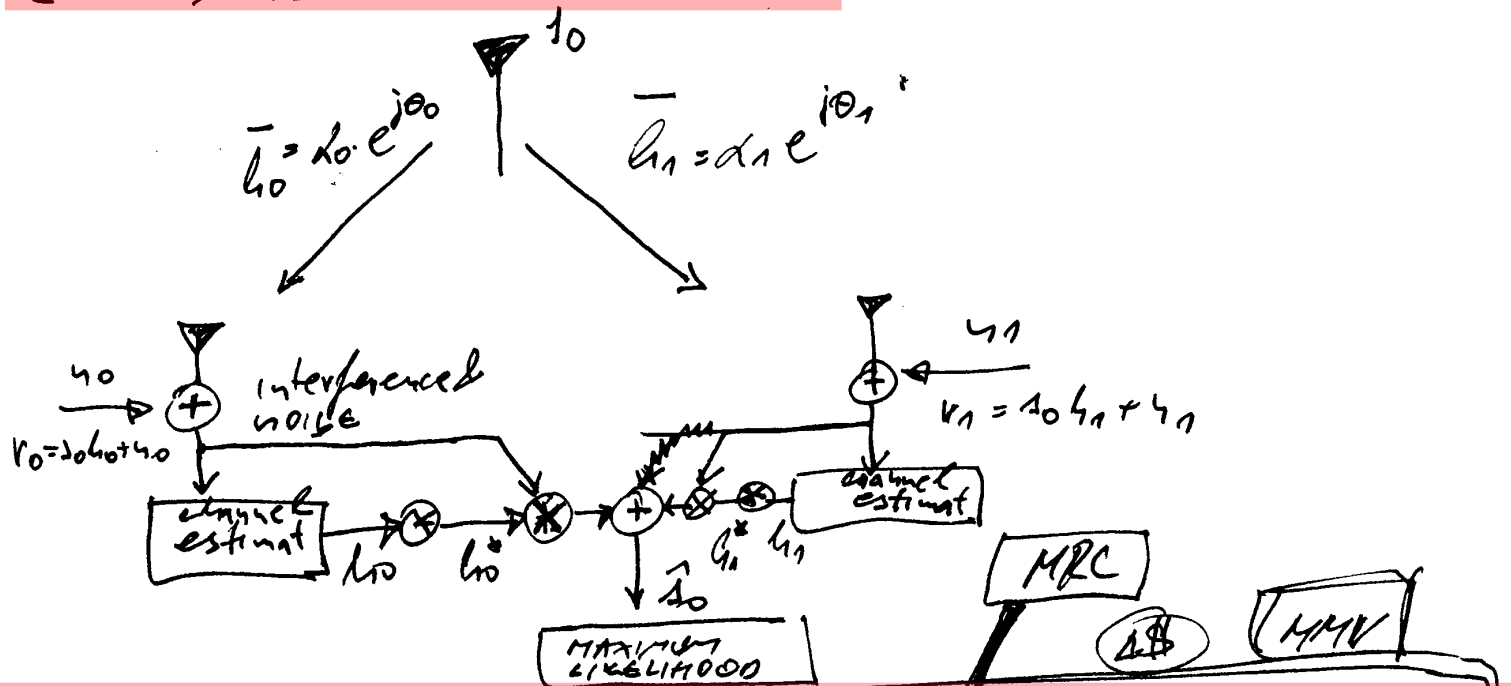 s0
h0 = α0 · e^jθ0
h1 = α1 e^jθ1
n0
interference &
noise
r0 = s0h0 + n0
n1
r1 = s0 h1 + n1
channel
estimat
h0
h0*
h1*
h1
channel
estimat
ŝ0
MAXIMUM
LIKELIHOOD
MRC
1$